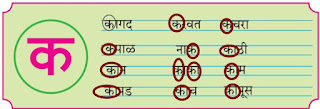 क
कागद करवत कचरा
कपाळ नाक काठी
काम काका काम
कापड काच कापूस